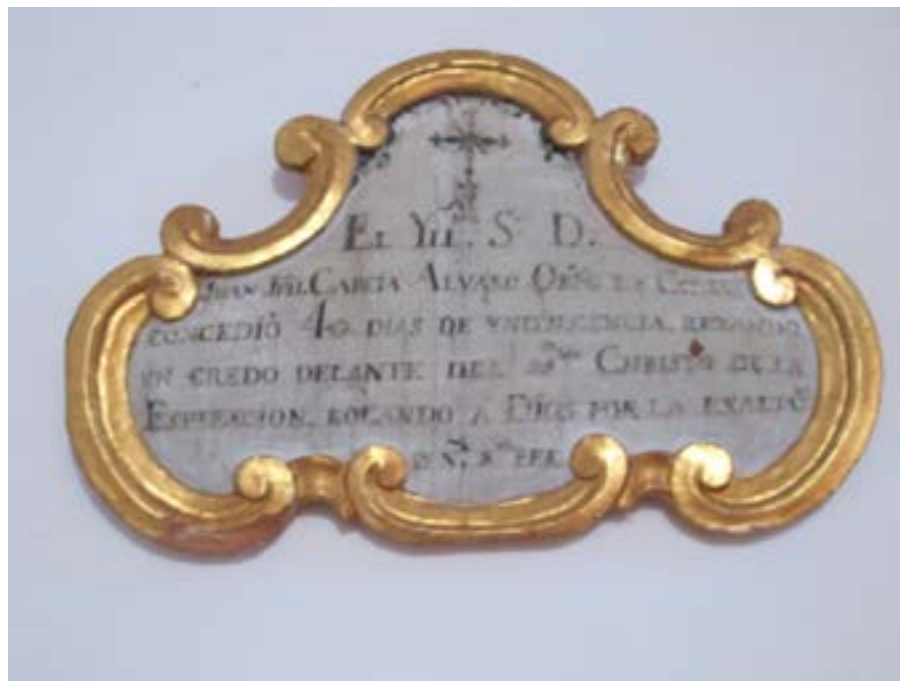 El Yll. Sr D.
Juan Jph. García Alvaro Obpo de
concedió 40 dias de yndulgencia, rezando
un credo delante del ssmo Christo de la
Espiracion, rogando a Dios por la exaltn
de N. Sta fee